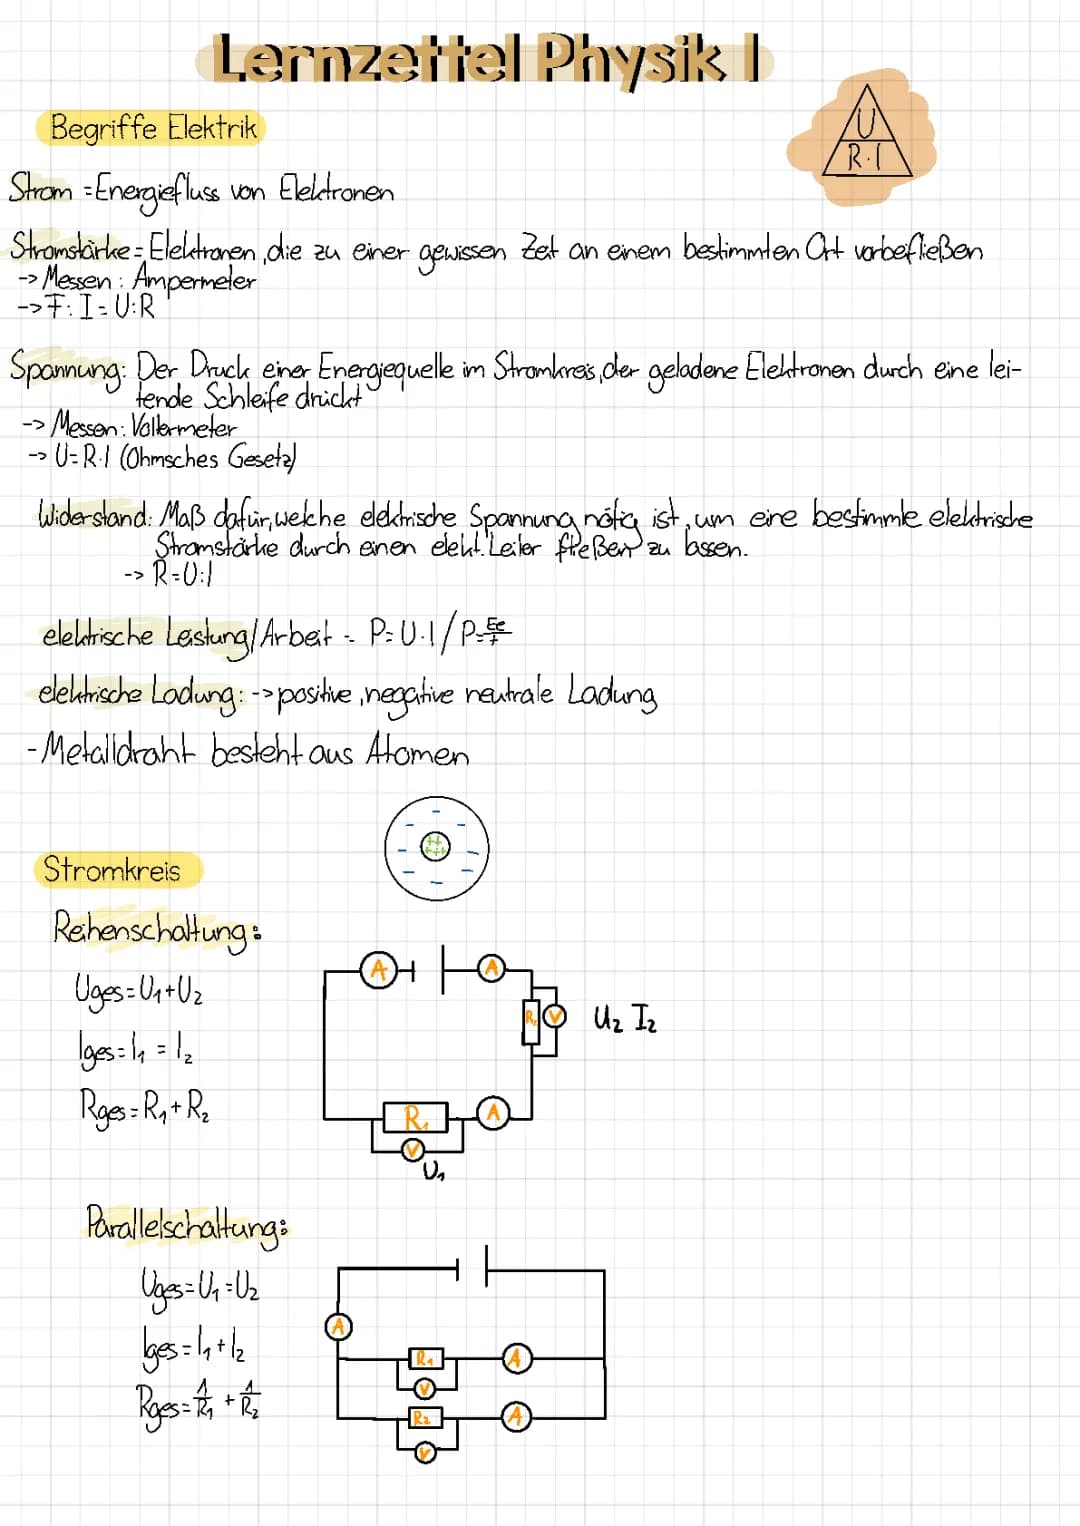 Lernzettel Physik I
U
R·I
Begriffe Elektrik
Strom = Energiefluss von Elektronen
Stromstärke = Elektronen, die zu einer gewissen Zeit an einem bestimmten Ort vorbeifließen
-> Messen: Ampermeter
-> F: I = U:R
Spannung: Der Druck einer Energiequelle im Stromkreis, der geladene Elektronen durch eine lei-
tende Schleife drückt
-> Messen: Voltermeter
-> U=R·I (Ohmsches Gesetz)
Widerstand: Maß dafür, welche elektrische Spannung nötig ist, um eine bestimmte elektrische
Stromstärke durch einen elekt. Leiter fließen zu lassen.
-> R=U:I
elektrische Leistung/Arbeit = P=U·I/P=
elektrische Ladung: -> positive, negative neutrale Ladung
-Metalldraht besteht aus Atomen
Stromkreis
Reihenschaltung:
Uges=U1+U2
Iges=I1=I2
Rges=R1+R2
A
A
R
V
U2 I2
R1
A
V
U1
Parallelschaltung:
Uges=U1=U2
Iges=I1+I2
Rges=1/R1+1/R2
A
R1
A
V
R2
A
V